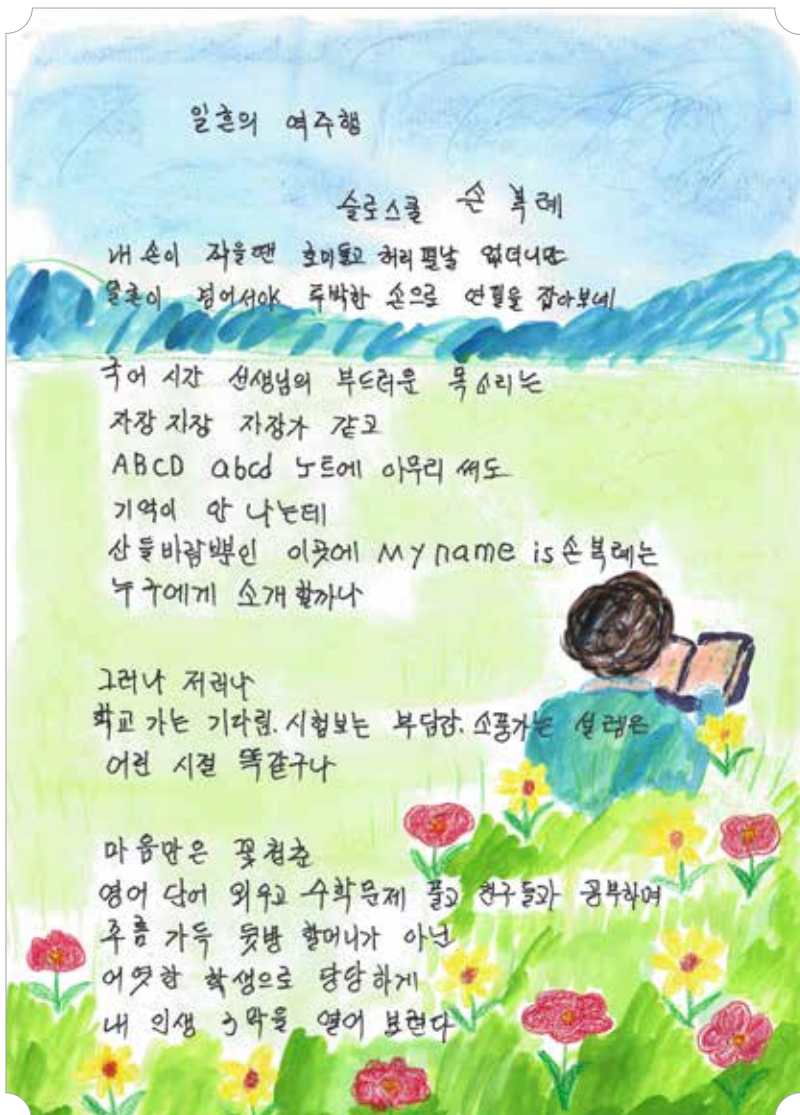 일흔의 역주행
슬로스쿨 손 복례
내 손이 작을땐 호미들고 허리 펼날 없더니만
일흔이 넘어서야 투박한 손으로 연필을 잡아보네
국어 시간 선생님의 부드러운 목소리는
자장 자장 자장가 같고
ABCD abcd 노트에 아무리 써도
기억이 안 나는데
산들바람뿐인 이곳에 My name is 손복례는
누구에게 소개할까나
그러나 저러나
학교 가는 기다림. 시험보는 부담감. 소풍가는 설렘은
어린 시절 똑같구나
마음만은 꽃청춘
영어 단어 외우고 수학문제 풀고 친구들과 공부하며
주름 가득 뒷방 할머니가 아닌
어엿한 학생으로 당당하게
내 인생 3막을 열어 보련다